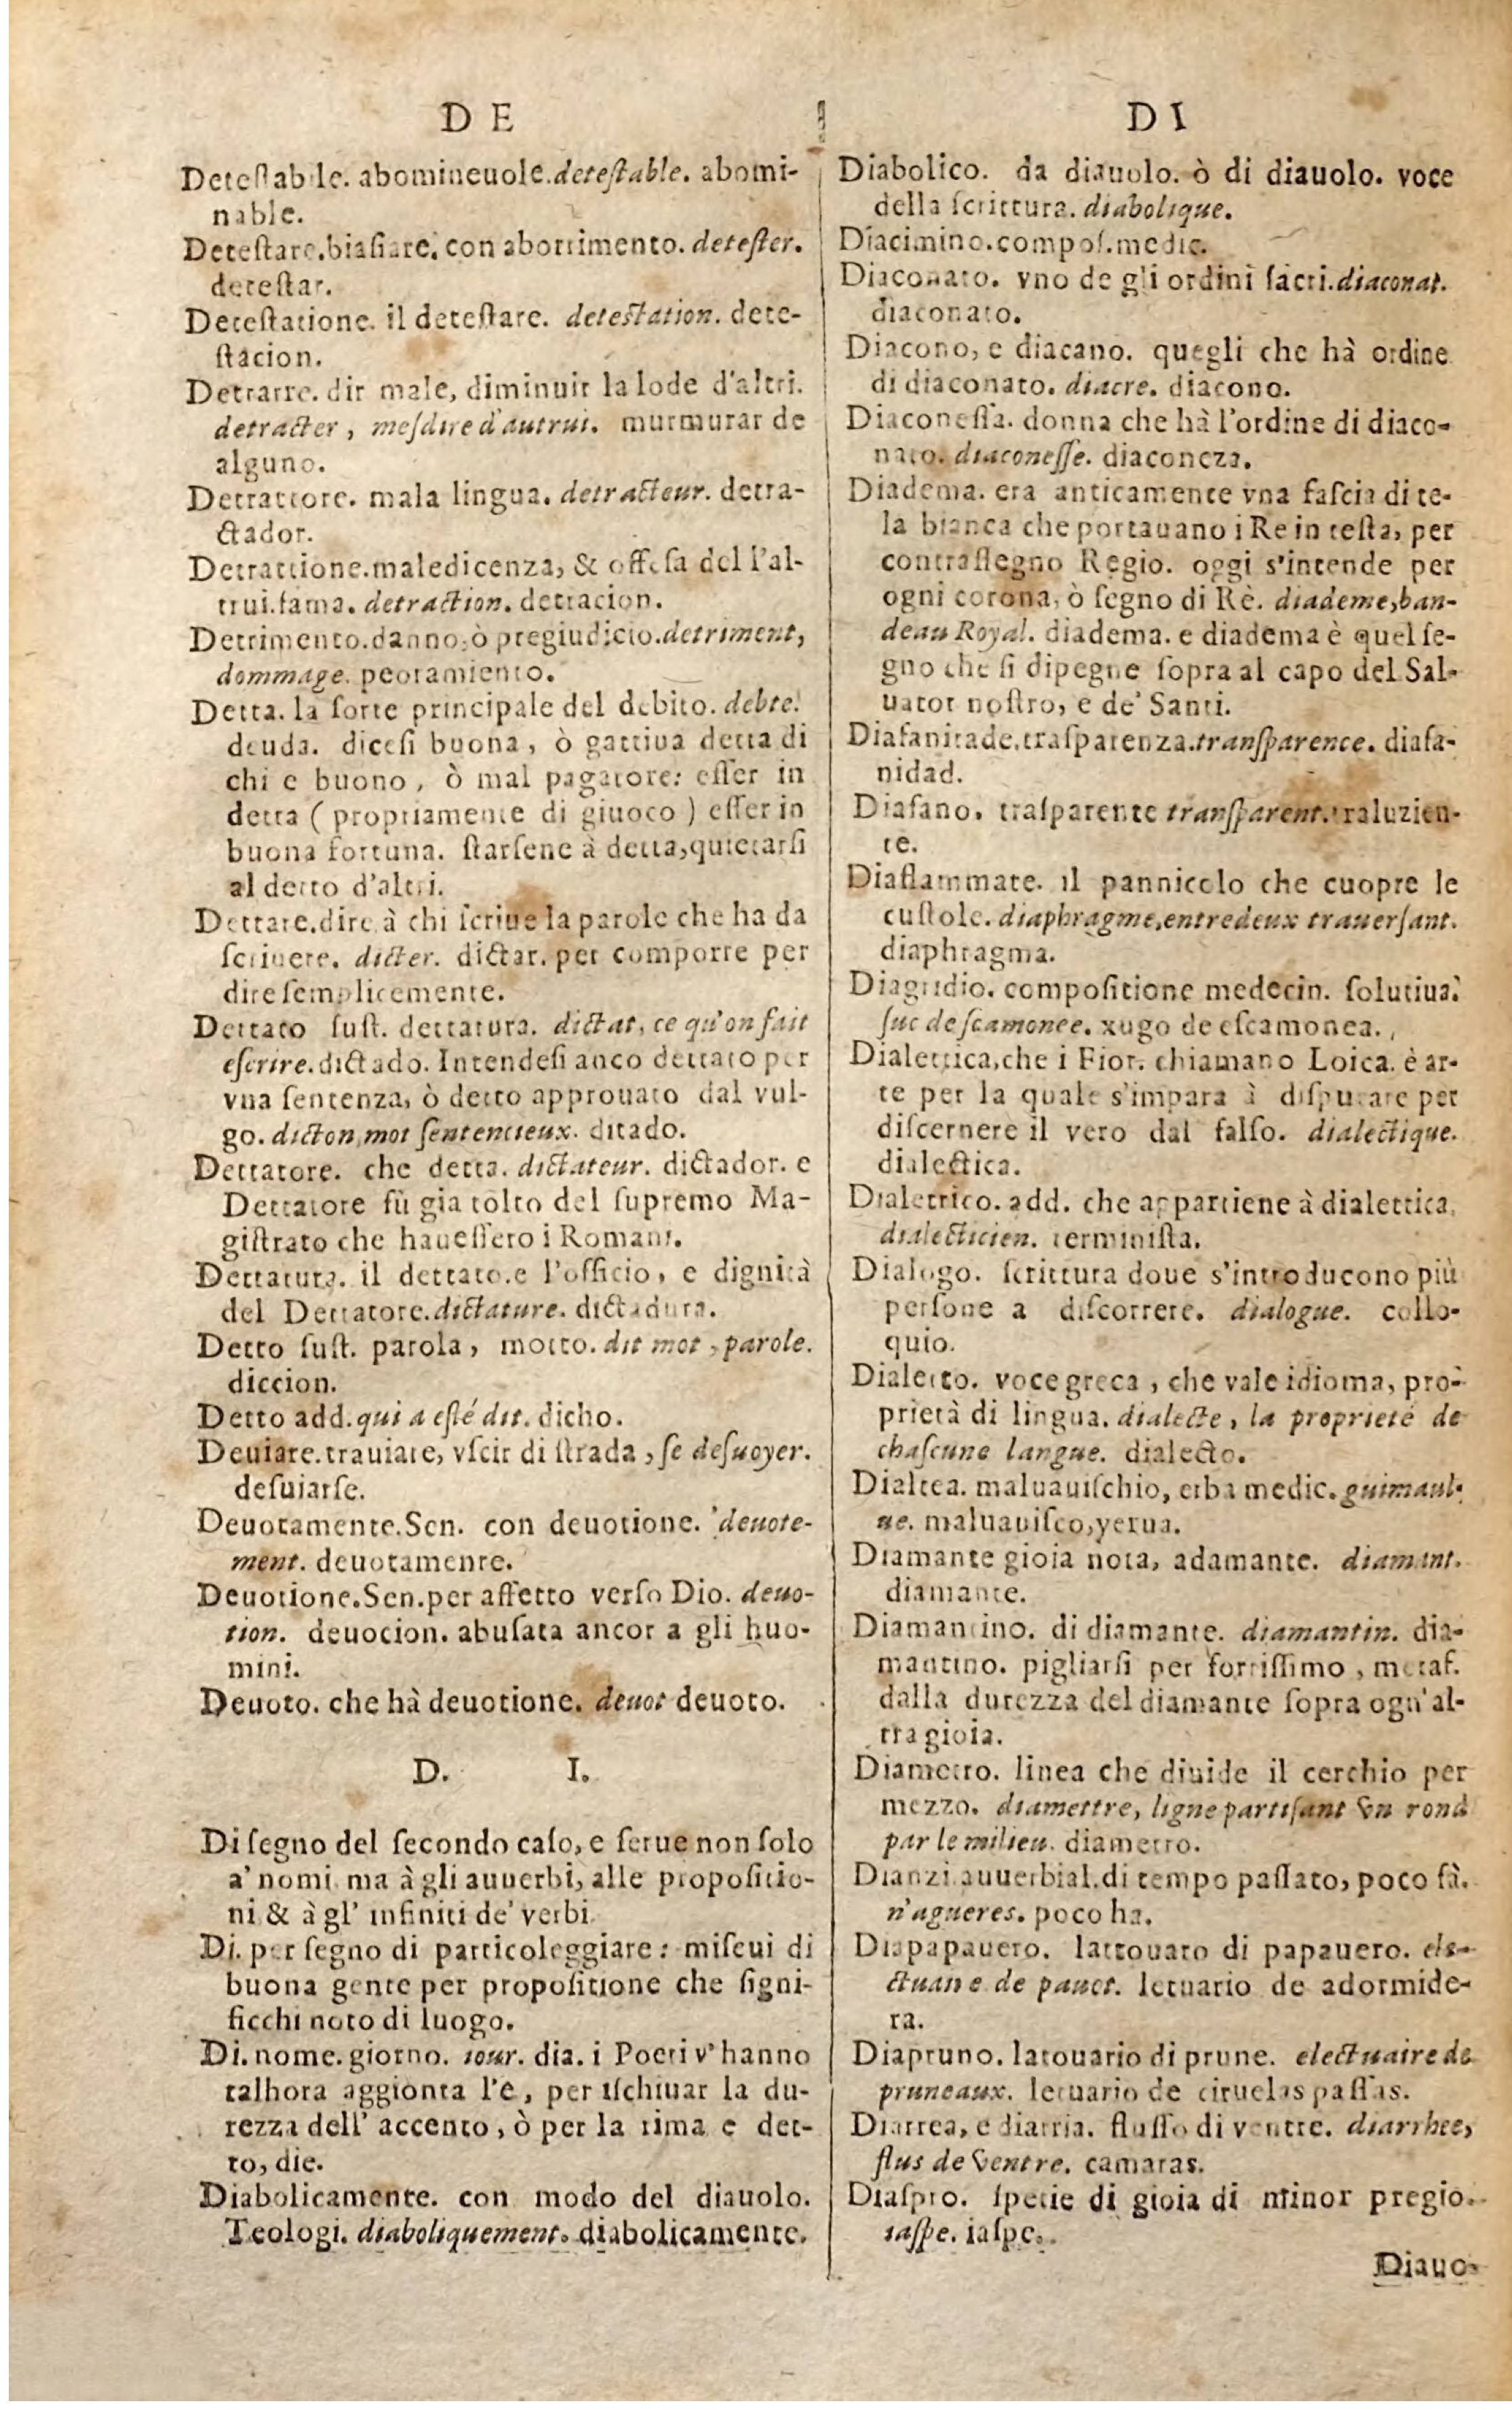 DE
Detestabile. abomineuole. detestable. abomi-
nable.
Detestare. biasiare. con aborrimento. detester.
detestar.
Detestatione. il detestare. detestation. dete-
stacion.
Detrarre. dir male, diminuir la lode d'altri.
detracter, mesdire d'autrui. murmurar de
alguno.
Detrattore. mala lingua. detracteur. detra-
ctador.
Detrattione. maledicenza, & offesa del l'al-
trui. fama. detraction. detracion.
Detrimento. danno, ò pregiudicio. detriment,
dommage. peoramiento.
Detta. la sorte principale del debito. debte.
deuda. dicesi buona, ò gattiua detta di
chi e buono, ò mal pagatore: esser in
detta (propriamente di giuoco) esser in
buona fortuna. starsene à detta, quietarsi
al detto d'altri.
Dettare. dire à chi scriue la parole che ha da
scriuere. dicter. dictar. per comporre per
dire semplicemente.
Dettato sust. dettatura. dictat, ce qu'on fait
escrire. dictado. Intendesi anco dettato per
vna sentenza, ò detto approuato dal vul-
go. dicton, mot sentencieux. ditado.
Dettatore. che detta. dictateur. dictador. e
Dettatore fù gia tolto del supremo Ma-
gistrato che hauessero i Romani.
Dettatura. il dettato. e l'officio, e dignità
del Dettatore. dictature. dictadura.
Detto sust. parola, motto. dit mot, parole.
diccion.
Detto add. qui a esté dit. dicho.
Deuiare. trauiare, vscir di strada, se desuoyer.
desuiarse.
Deuotamente. Sen. con deuotione. deuote-
ment. deuotamente.
Deuotione. Sen. per affetto verso Dio. deuo-
tion. deuocion. abusata ancor a gli huo-
mini.
Deuoto. che hà deuotione. deuot deuoto.
D. I.
Di segno del secondo caso, e serue non solo
a' nomi ma à gli auuerbi, alle propositio-
ni & à gl' infiniti de' verbi.
Di. per segno di particoleggiare: miseui di
buona gente per propositione che signi-
ficchi noto di luogo.
Di. nome. giorno. iour. dia. i Poeti v' hanno
talhora aggionta l'e, per ischiuar la du-
rezza dell' accento, ò per la rima e det-
to, die.
Diabolicamente. con modo del diauolo.
Teologi. diaboliquement. diabolicamente.
DI
Diabolico. da diauolo. ò di diauolo. voce
della scrittura. diabolique.
Diacimino. compos. medic.
Diaconato. vno de gli ordini sacri. diaconat.
diaconato.
Diacono, e diacano. quegli che hà ordine
di diaconato. diacre. diacono.
Diaconessa. donna che hà l'ordine di diaco-
nato. diaconesse. diaconeza.
Diadema. era anticamente vna fascia di te-
la bianca che portauano i Re in testa, per
contrassegno Regio. oggi s'intende per
ogni corona, ò segno di Rè. diademe, ban-
deau Royal. diadema. e diadema è quel se-
gno che si dipegne sopra al capo del Sal-
uator nostro, e de' Santi.
Diafanitade. trasparenza. transparence. diafa-
nidad.
Diafano. trasparente transparent. traluzien-
te.
Diaflammate. il pannicolo che cuopre le
custole. diaphragme, entredeux trauersant.
diaphragma.
Diagridio. compositione medecin. solutiua.
suc de scamonee. xugo de escamonea.
Dialettica, che i Fior. chiamano Loica. è ar-
te per la quale s'impara à disputare per
discernere il vero dal falso. dialectique.
dialectica.
Dialettico. add. che appartiene à dialettica.
dialecticien. terminista.
Dialogo. scrittura doue s'introducono più
persone a discorrere. dialogue. collo-
quio.
Dialetto. voce greca, che vale idioma, pro-
prietà di lingua. dialecte, la proprieté de
chascune langue. dialecto.
Dialtea. maluauischio, erba medic. guimaul-
ue. maluauisco, yerua.
Diamante gioia nota, adamante. diamant.
diamante.
Diamantino. di diamante. diamantin. dia-
mantino. pigliarsi per fortissimo, metaf.
dalla durezza del diamante sopra ogn' al-
tra gioia.
Diametro. linea che diuide il cerchio per
mezzo. diamettre, ligne partisant vn rond
par le milieu. diametro.
Dianzi. auuerbial. di tempo passato, poco fà.
n'agueres. poco ha.
Diapapauero. lattouaro di papauero. ele-
ctuaire de pauot. letuario de adormide-
ra.
Diapruno. latouario di prune. electuaire de
pruneaux. letuario de ciruelas passas.
Diarrea, e diarria. flusso di ventre. diarrhee,
flus de ventre. camaras.
Diaspro. spetie di gioia di minor pregio.
iaspe. iaspe.
Diauo-